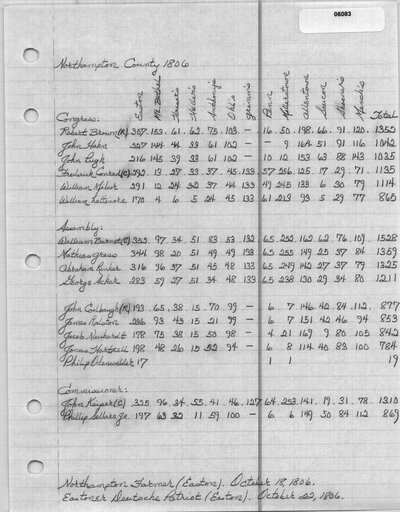 06083
Northampton County 1806
Easton Mt. Bethel Heller's Penn Allentown Saucon Total
Congress:
Robert Brown(R) 357. 153. 61. 62. 75. 103. — 16. 50. 198. 66. 91. 120. 1352
John Hahn 144 44 33 61 102 — — 9 164 51 91 116 1042
John Pugh 216 145 39 33 61 102 — 10 12 153 63 88 143 1035
Frederick Conrad 292 13 27 33 37 45 133 57 256 125 17 29. 71. 1135
William 291 12 24 32 37 44 133 49 245 133 6 30 79 1114
William Lattimore 170 4 6 5 24 45 133 61 213 93 5 29 77 865
Assembly:
William Barnet 352 97. 34. 51 83. 53. 132 65. 252. 162. 62. 76. 109. 1528
Mathias Gress 344 98 20 51 49 49 133 65 255 149 25 37 84 1359
Abraham 316 96 37 51 45 48 133 65 249 142 27 37 79 1325
George Acker 283 59 27 51 34 48 133 65 238 130 29 34 80 1211
John 193. 65. 38. 15. 70. 99 — 6 7 146. 42 84. 112. 877
James Ralston 286 93 43 15 21 99 — 6 7 151 42 46 94 853
Jacob 178 75 38 15 50 98 — 4 21 169 9 80 105 842
Jonas Hartzell 198 48 26 15 52 94 — 6 8 114 40 83 100 784
Philip 17 1 1 19
Commissioner:
John 325 96. 34. 55. 41. 46. 127 64. 253. 141. 19. 31. 78. 1310
Phillip Sellers Jr. 197 63 32 11 59 100 — 6 6 149 50 84 112 869
Northampton Farmer (Easton). October 18, 1806.
Eastoner Deutsche Patriot (Easton). October 22, 1806.